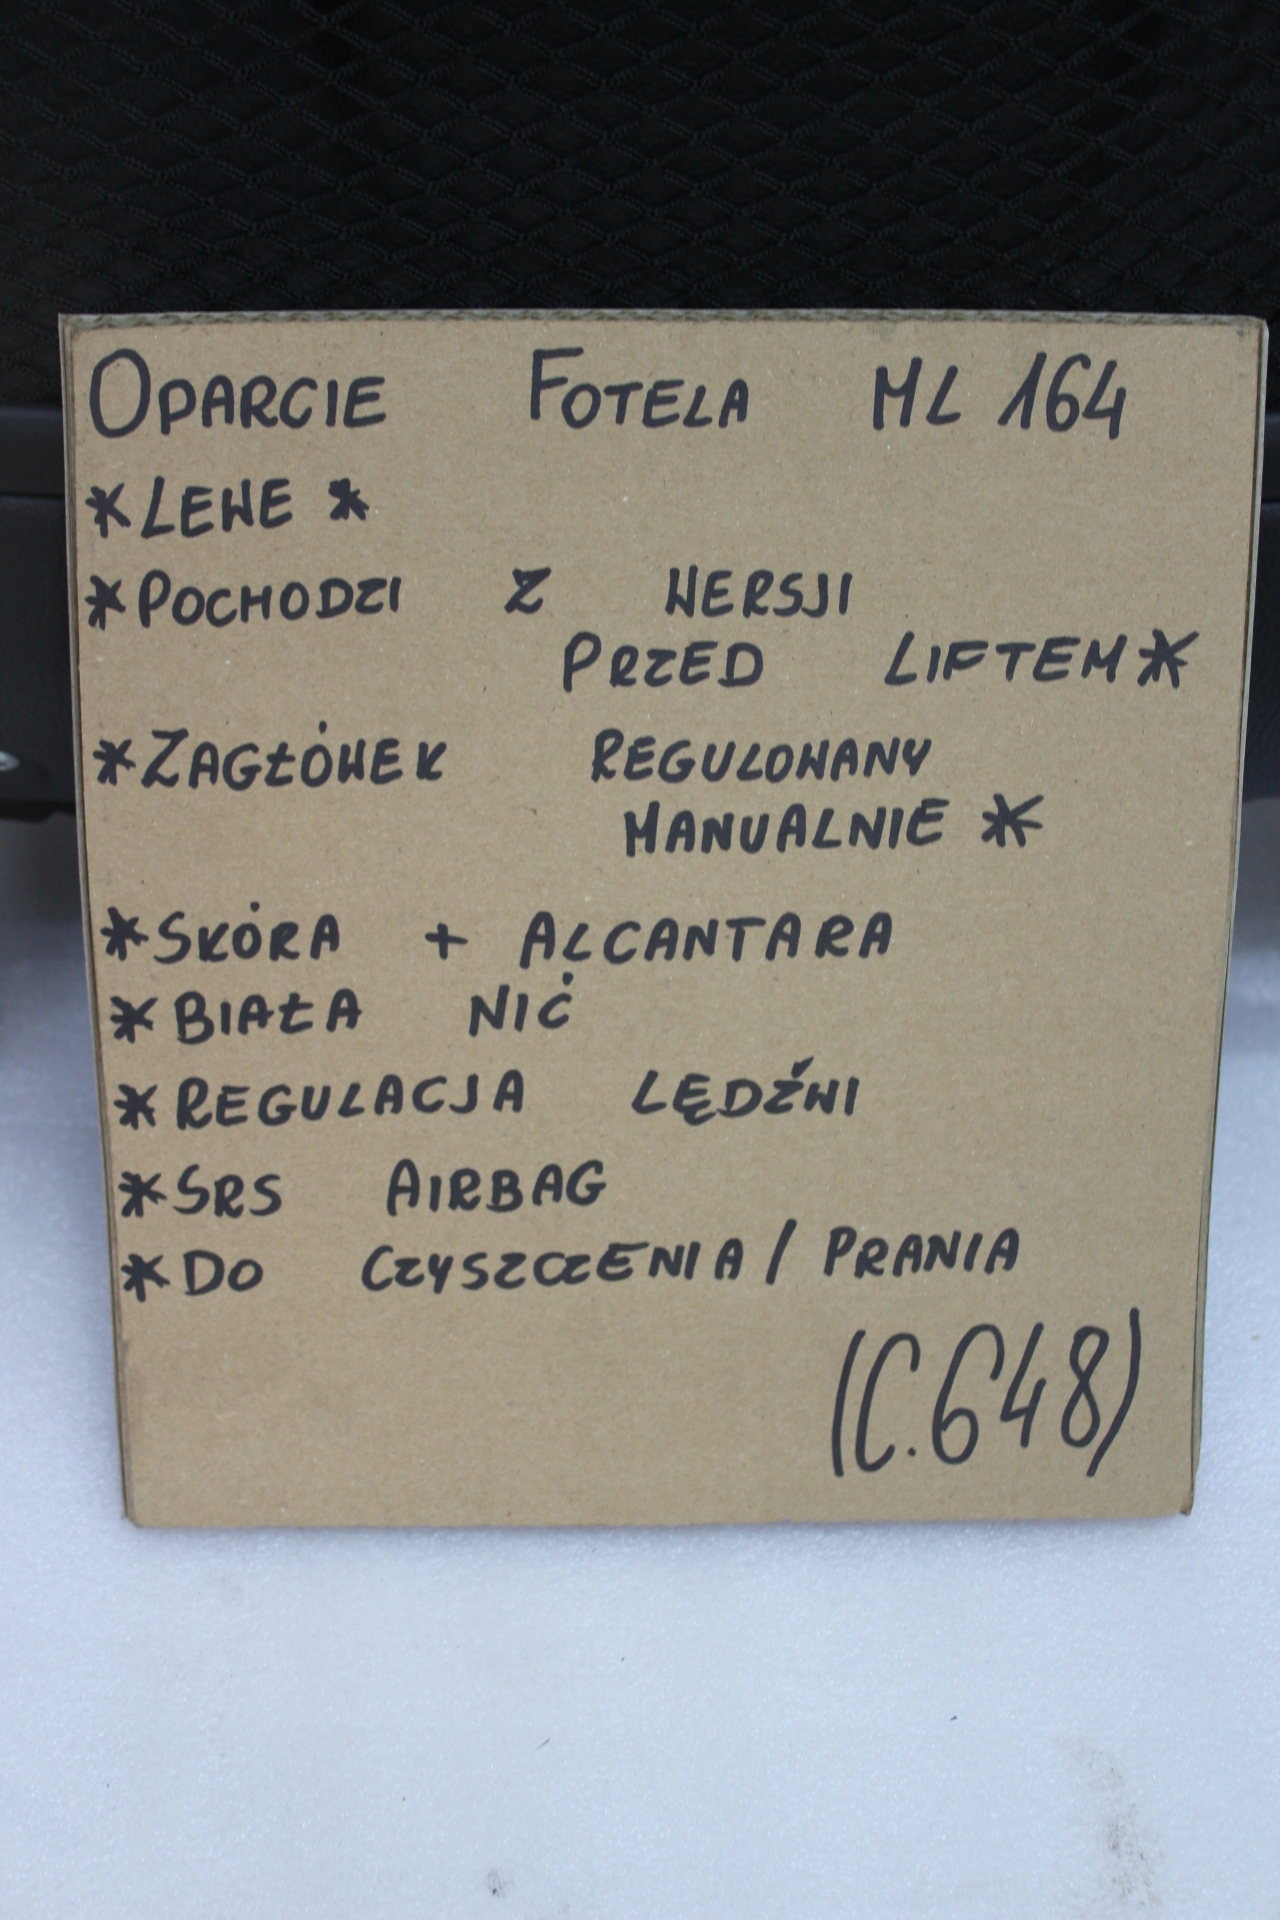 OPARCIE FOTELA ML 164
*LEWE *
*POCHODZI Z WERSJI
PRZED LIFTEM*
*ZAGŁÓWEK REGULOWANY
MANUALNIE *
*SKÓRA + ALCANTARA
*BIAŁA NIĆ
*REGULACJA LĘDŹWI
*SRS AIRBAG
*DO CZYSZCZENIA / PRANIA
(C.648)